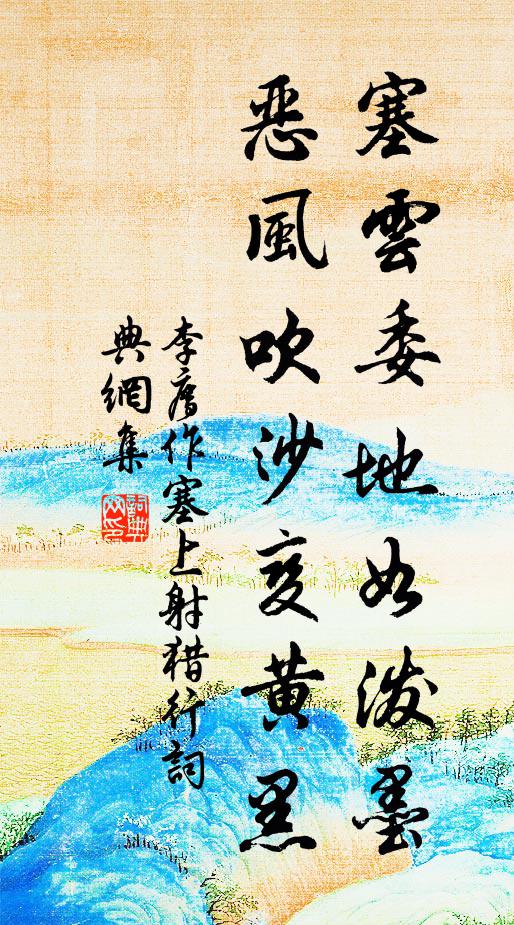 塞雲委地如泼墨
恶風吹沙变黄黑
李作塞上射猎行詞
典網集
詞典
网印